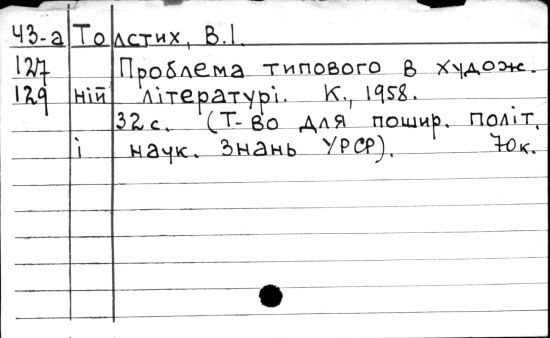 Ч3-а Толстих, В.І.
127 Проблема типового в худож.
129 ній літературі. К., 1958.
32 с. (Т-во для пошир. політ.
і наук. знань УРСР). 70к.